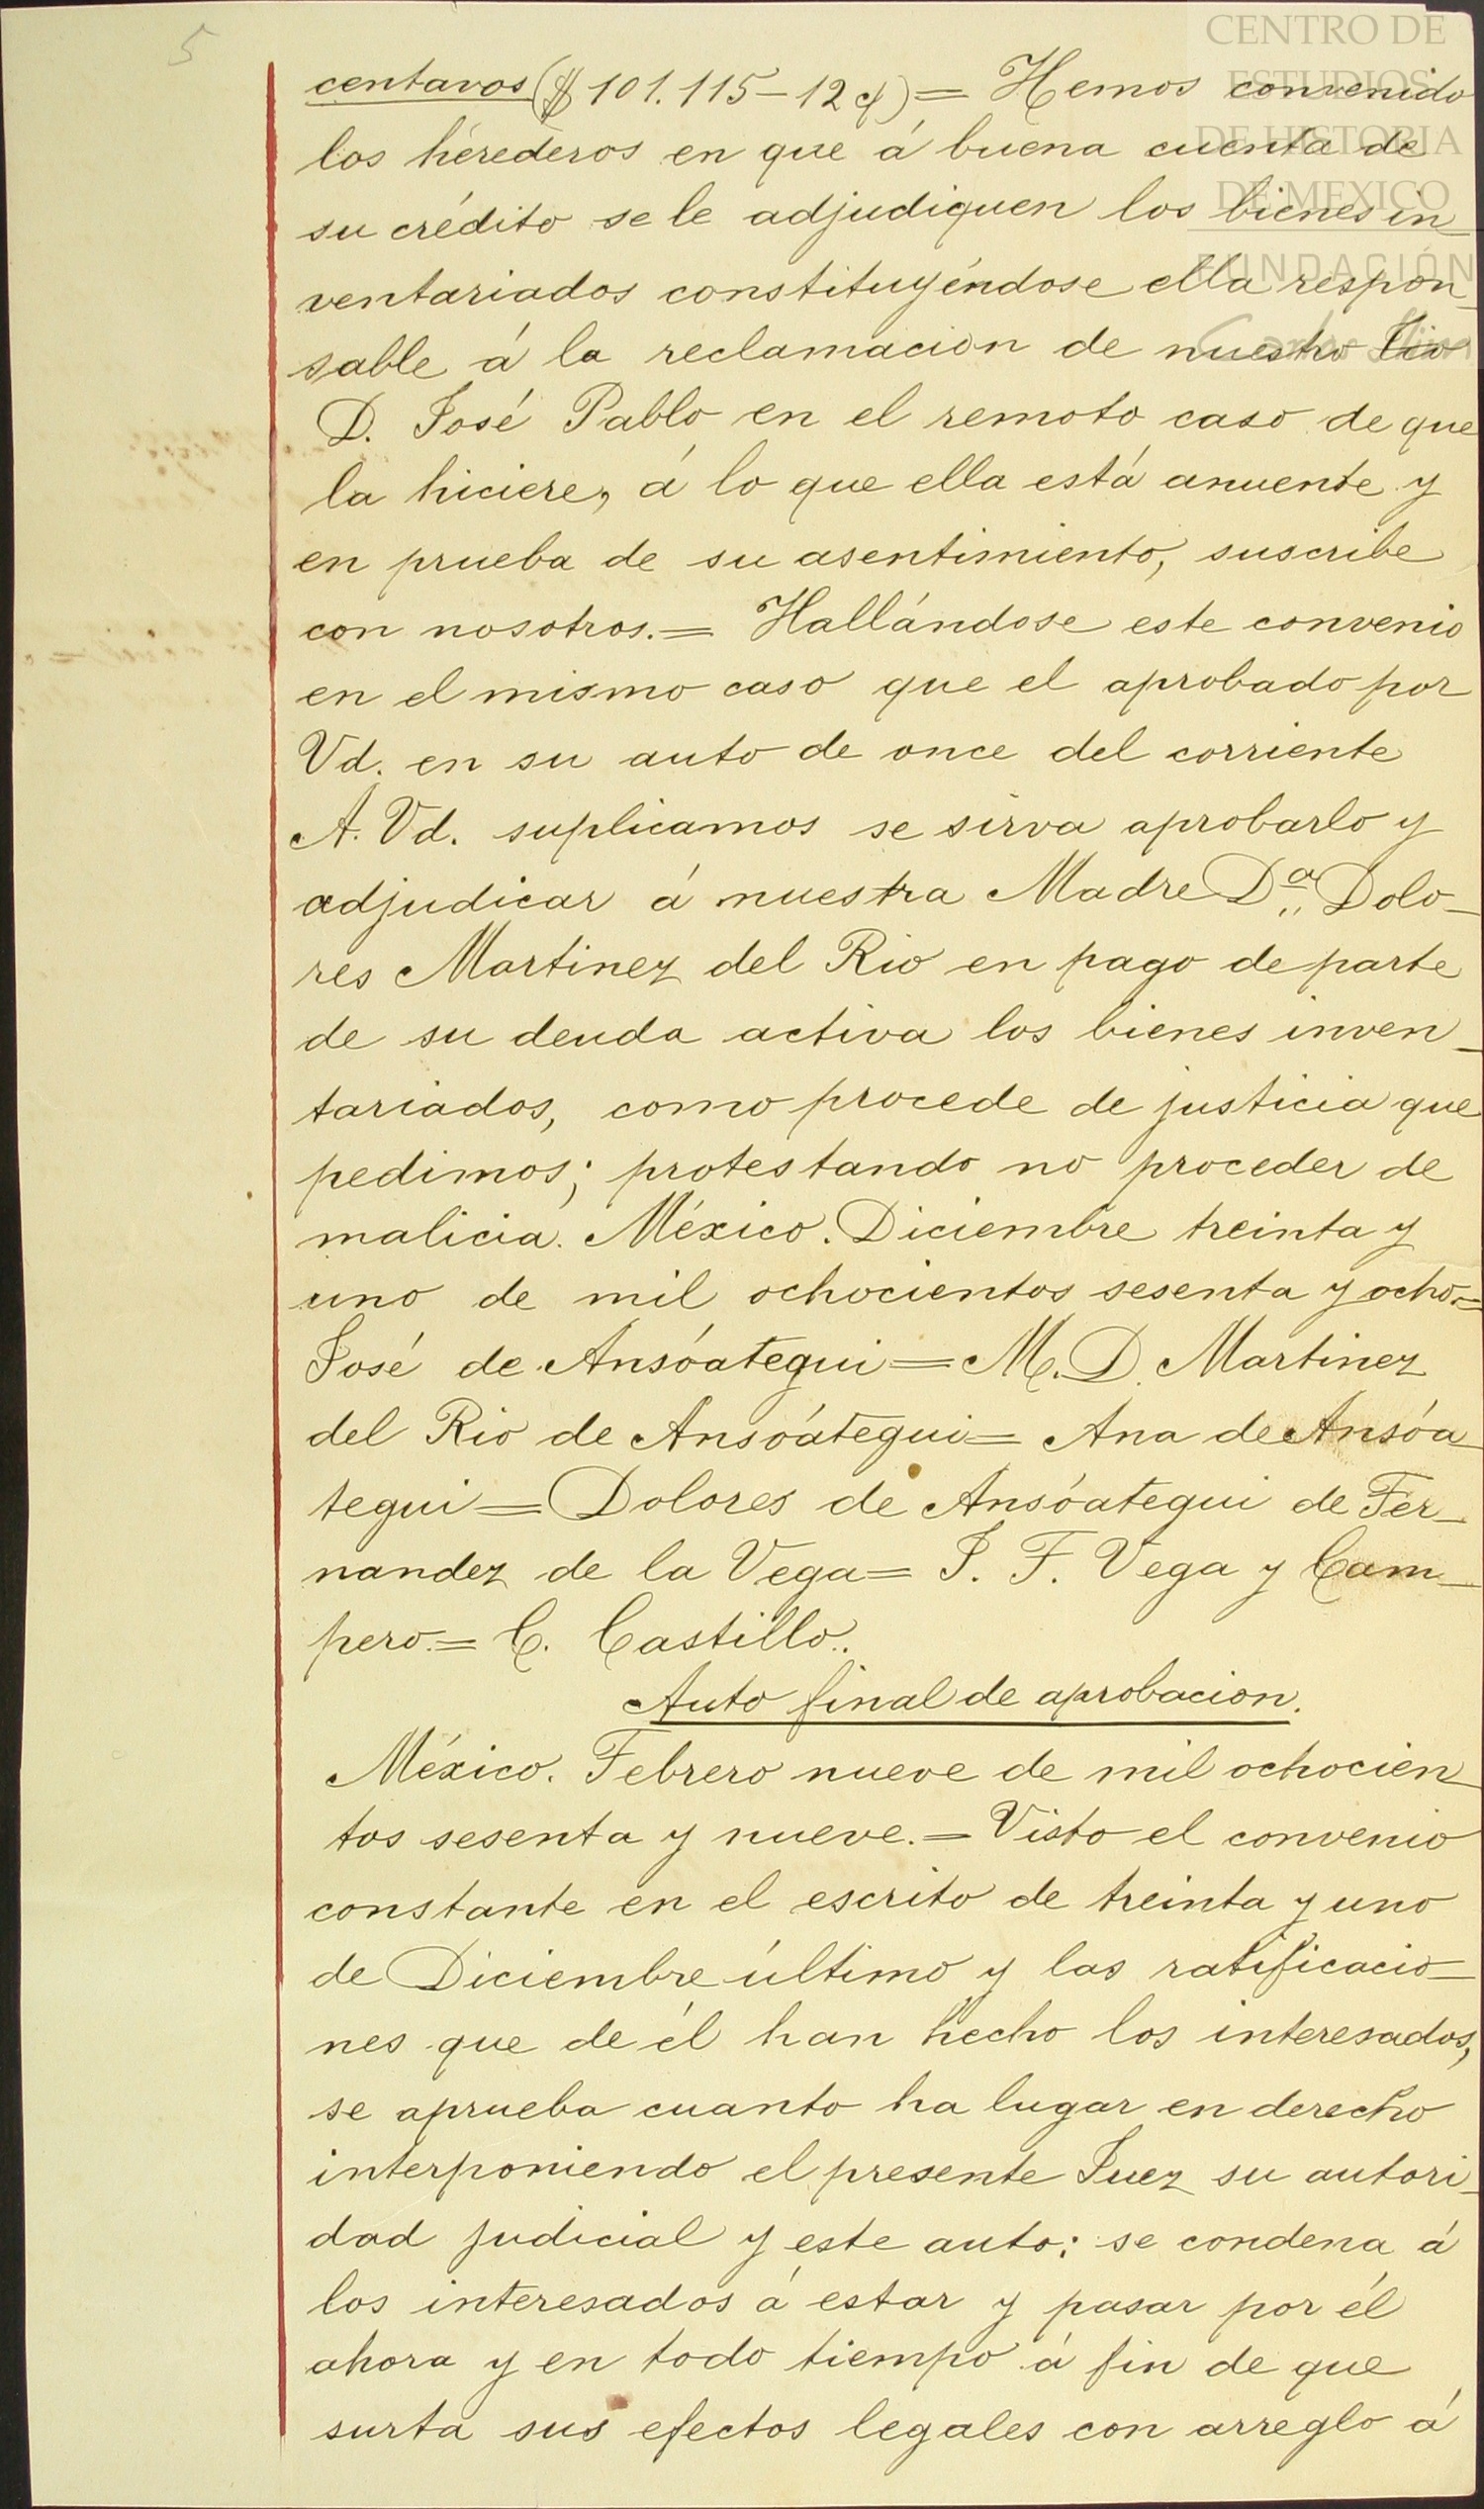 5
CENTRO DE
ESTUDIOS
DE HISTORIA
DE MEXICO
FUNDACIÓN
centavos ($101.115-12 ¢) = Hemos convenido
los hérederos en que á buena cuenta de
su crédito se le adjudiquen los bienes in_
ventariados constituyéndose ella respon_
sable á la reclamacion de nuestro tio
D. José Pablo en el remoto caso de que
la hiciere, á lo que ella está anuente y
en prueba de su asentimiento, suscribe
con nosotros.= Hallándose este convenio
en el mismo caso que el aprobado por
Vd. en su auto de once del corriente
A. Vd. suplicamos se sirva aprobarlo y
adjudicar á nuestra Madre Dª Dolo_
res Martinez del Rio en pago de parte
de su deuda activa los bienes inven_
tariados, como procede de justicia que
pedimos; protestando no proceder de
malicia. México. Diciembre treinta y
uno de mil ochocientos sesenta y ocho.=
José de Ansóategui = M. D. Martinez
del Rio de Ansóátegui = Ana de Ansóa_
tegui = Dolores de Ansóategui de Fer_
nandez de la Vega = J. F. Vega y Cam_
pero.= C. Castillo.
Auto final de aprobacion.
México. Febrero nueve de mil ochocien_
tos sesenta y nueve.= Visto el convenio
constante en el escrito de treinta y uno
de Diciembre último y las ratificacio_
nes que de él han hecho los interesados,
se aprueba cuanto ha lugar en derecho
interponiendo el presente Juez su autori_
dad judicial y este auto: se condena á
los interesados á estar y pasar por él
ahora y en todo tiempo á fin de que
surta sus efectos legales con arreglo á